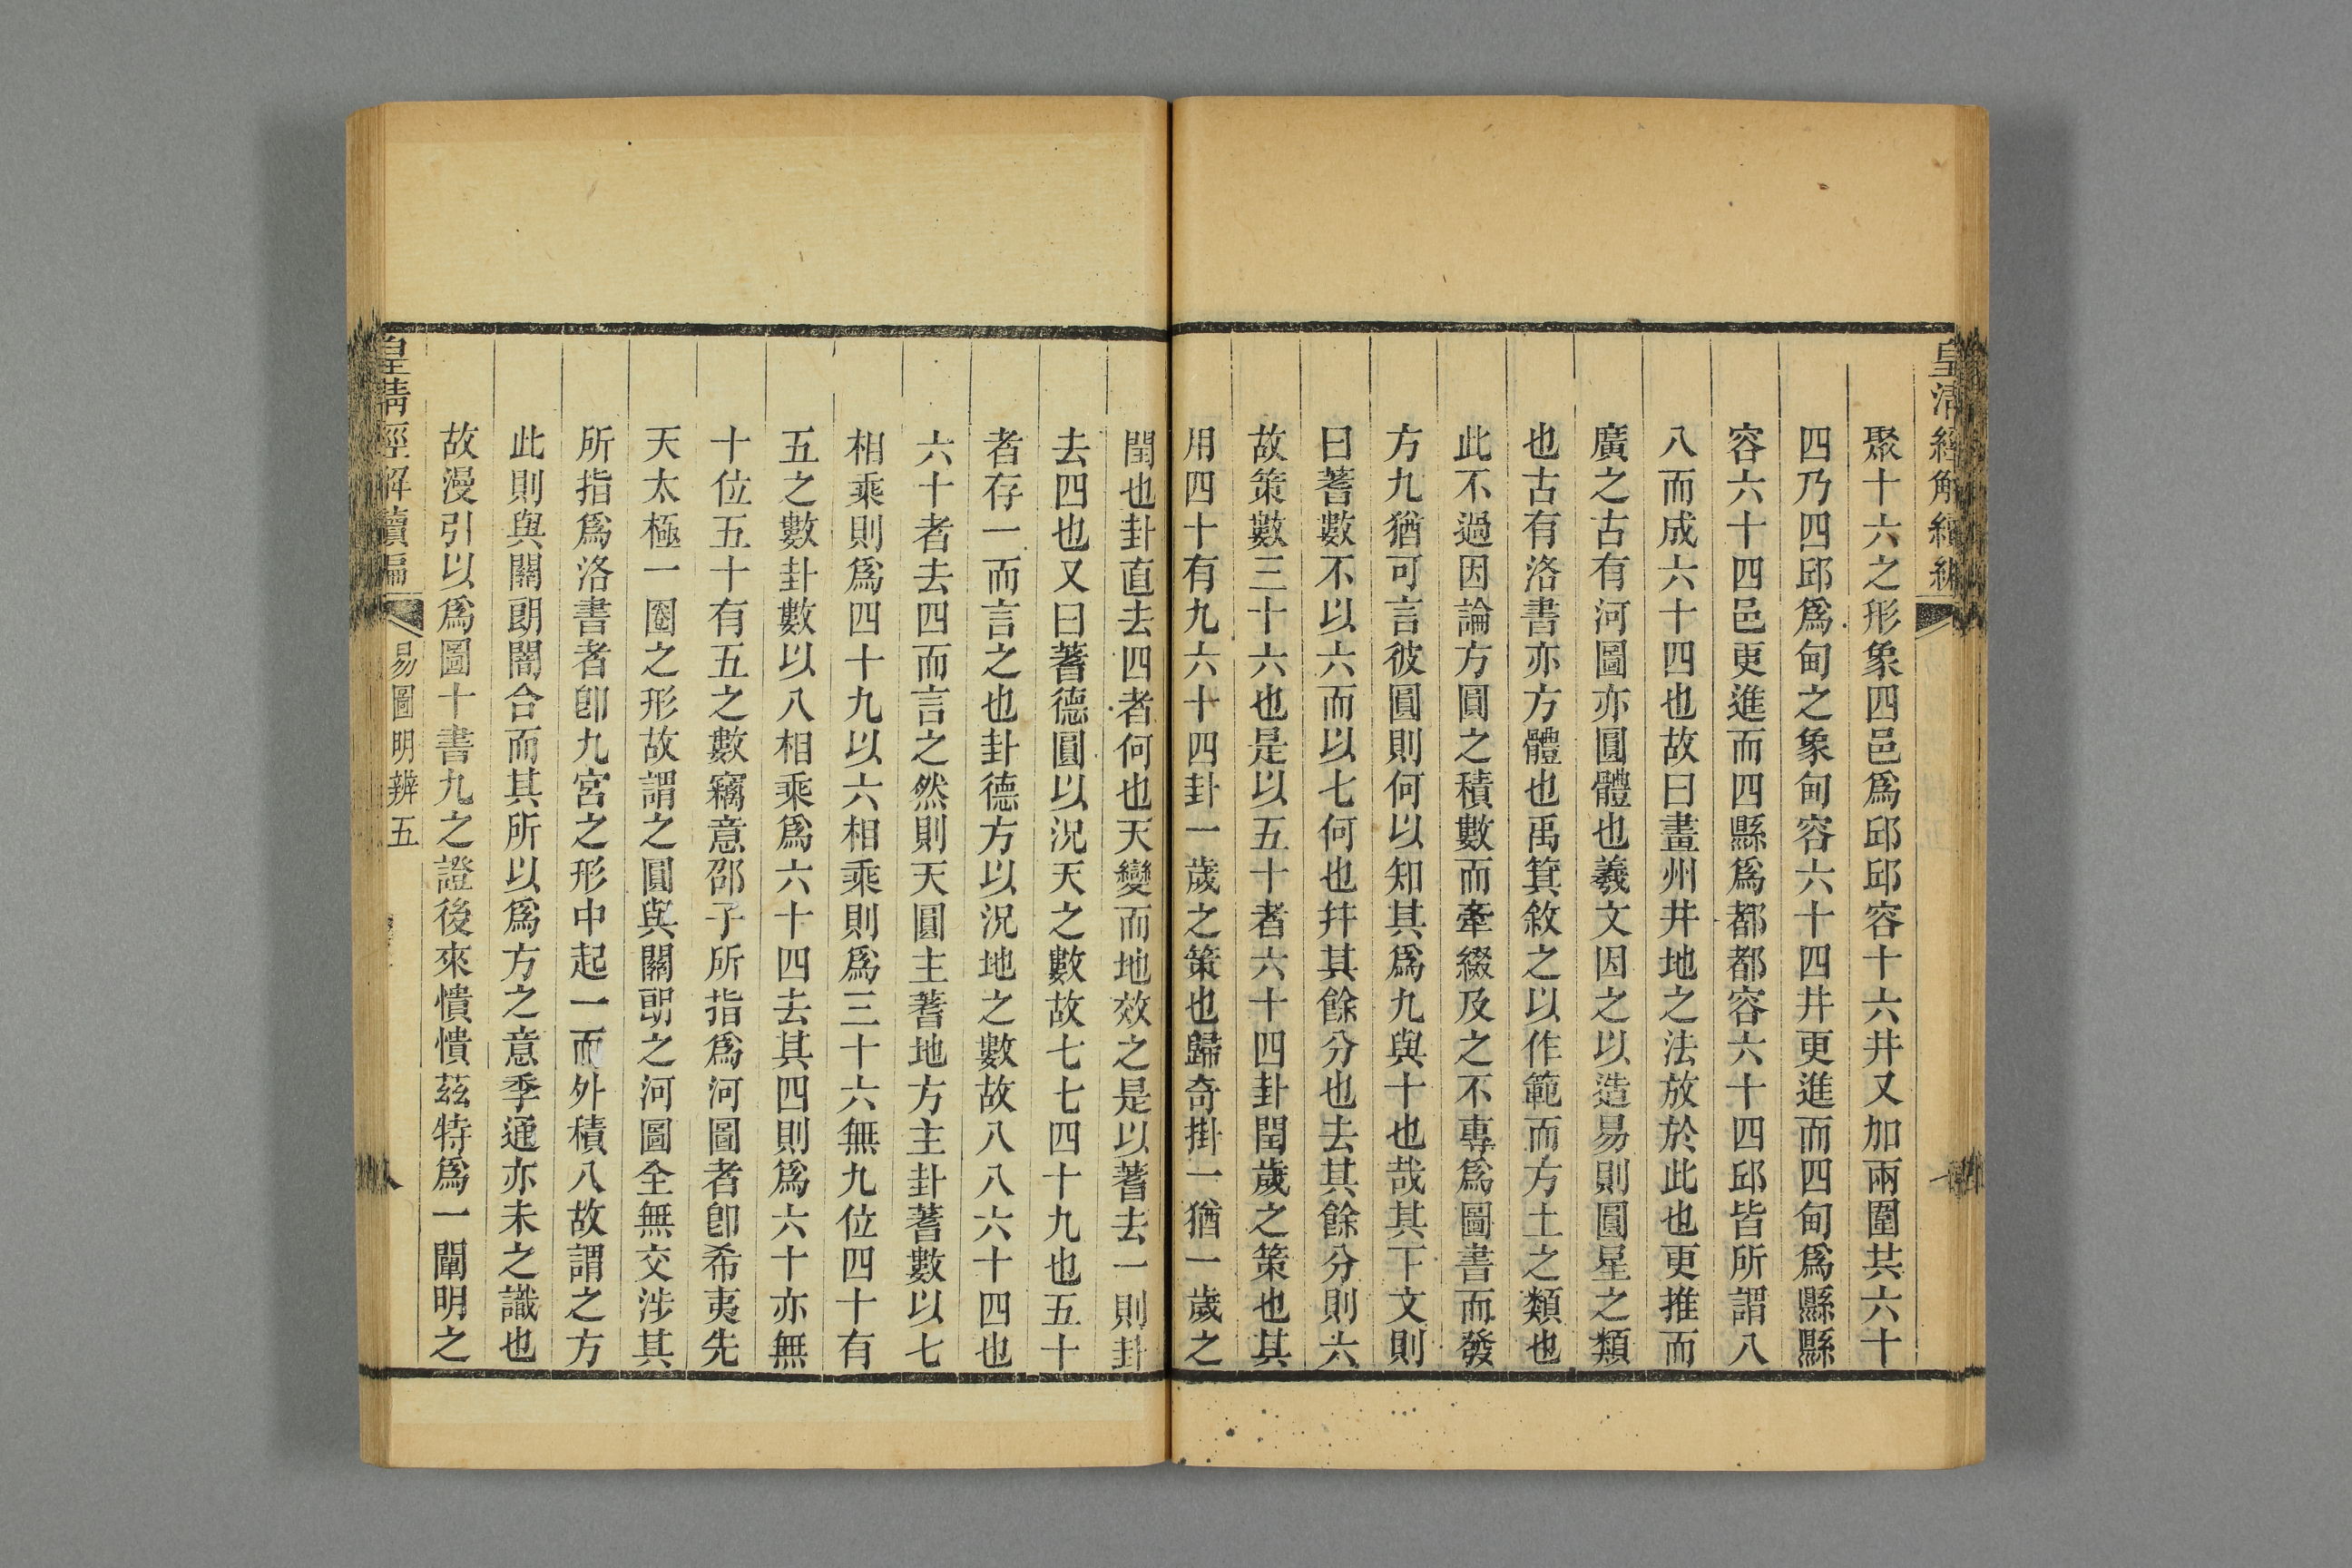 皇清經解續編
聚十六之形象四邑爲邱邱容十六井又加兩圍共六十
四乃四邱爲甸之象甸容六十四井更進而四甸爲縣縣
容六十四邑更進而四縣爲都都容六十四邱皆所謂八
八而成六十四也故曰畫州井地之法放於此也更推而
廣之古有河圖亦圓體也羲文因之以造易則圓星之類
也古有洛書亦方體也禹箕敘之以作範而方土之類也
此不過因論方圓之積數而牽綴及之不專爲圖書而發
方九猶可言彼圓則何以知其爲九與十也哉其下文則
曰蓍數不以六而以七何也幷其餘分也去其餘分則六
故策數三十六也是以五十者六十四卦閏歲之策也其
用四十有九六十四卦一歲之策也歸奇掛一猶一歲之
閏也卦直去四者何也天變而地效之是以蓍去一則卦
去四也又曰蓍德圓以況天之數故七七四十九也五十
者存一而言之也卦德方以況地之數故八八六十四也
六十者去四而言之然則天圓主蓍地方主卦蓍數以七
相乘則爲四十九以六相乘則爲三十六無九位四十有
五之數卦數以八相乘爲六十四去其四則爲六十亦無
十位五十有五之數竊意邵子所指爲河圖者卽希夷先
天太極一圈之形故謂之圓與關朗之河圖全無交涉其
所指爲洛書者卽九宮之形中起一而外積八故謂之方
此則與關朗闇合而其所以爲方之意季通亦未之識也
故漫引以爲圖十書九之證後來憒憒茲特爲一闡明之
皇清經解續編
易圖明辨五